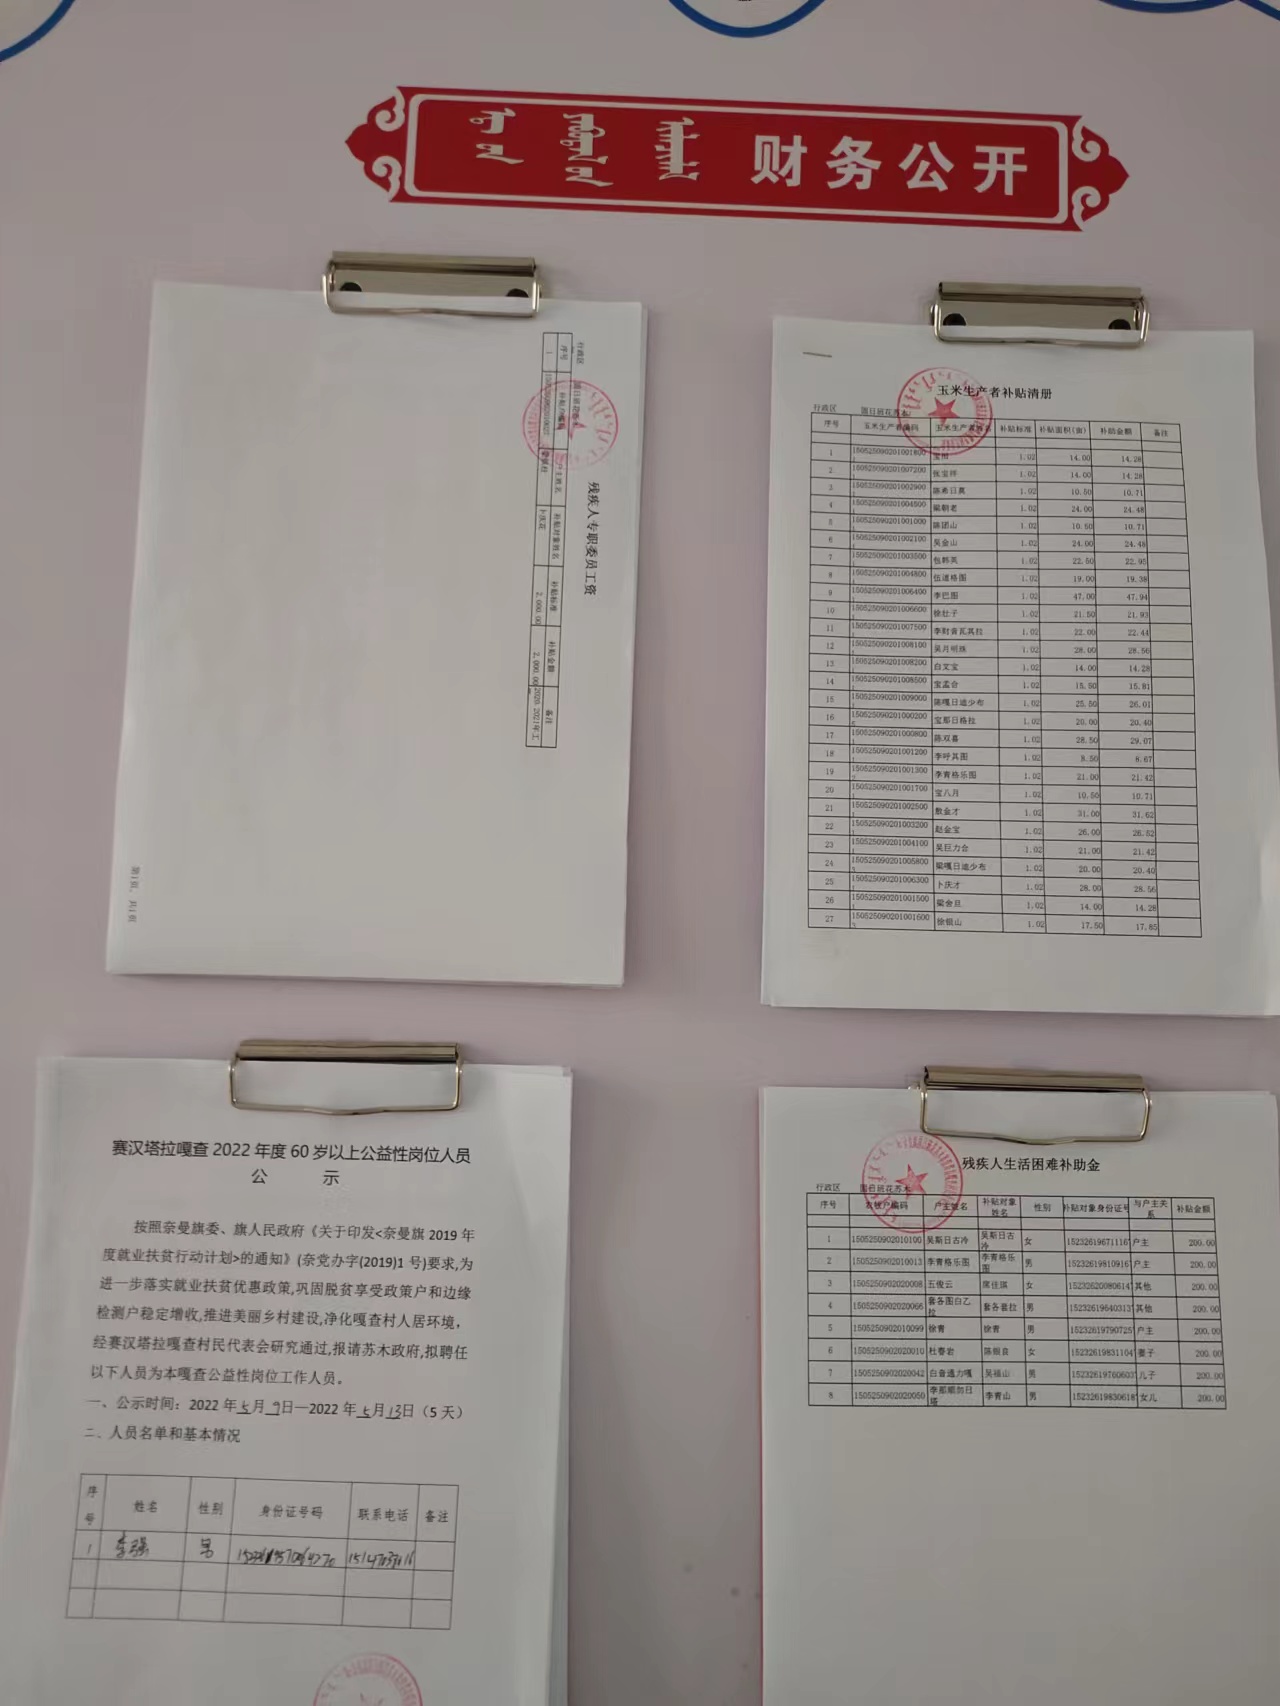 财务公开
残疾人专职委员工资
行政区
序号 户主姓名 补贴对象姓名 补贴标准 补贴金额 备注
1 卜庆花 2,000.00 2,000.00 2020.2021年工
第1页，共1页
玉米生产者补贴清册
行政区 固日班花苏木
序号 玉米生产者编码 玉米生产者姓名 补贴标准 补贴面积(亩) 补贴金额 备注
1 150525090201001800 1.02 14.00 14.28
2 150525090201007200 张宝祥 1.02 14.00 14.28
3 150525090201002900 陈希日莫 1.02 10.50 10.71
4 150525090201004500 梁朝老 1.02 24.00 24.48
5 150525090201001000 陈团山 1.02 10.50 10.71
6 150525090201002100 吴金山 1.02 24.00 24.48
7 150525090201003500 包韩英 1.02 22.50 22.95
8 150525090201004800 伍道格图 1.02 19.00 19.38
9 150525090201006400 李巴图 1.02 47.00 47.94
10 150525090201006600 徐社子 1.02 21.50 21.93
11 150525090201007500 李财音瓦其拉 1.02 22.00 22.44
12 150525090201008100 吴月明珠 1.02 28.00 28.56
13 150525090201008200 白文宝 1.02 14.00 14.28
14 150525090201008500 宝孟合 1.02 15.50 15.81
15 150525090201009000 陈嘎日迪少布 1.02 25.50 26.01
16 150525090201000200 宝那日格拉 1.02 20.00 20.40
17 150525090201000800 陈双喜 1.02 28.50 29.07
18 150525090201001200 李呼其图 1.02 8.50 8.67
19 150525090201001300 李青格乐图 1.02 21.00 21.42
20 150525090201001700 宝八月 1.02 10.50 10.71
21 150525090201002500 敖金才 1.02 31.00 31.62
22 150525090201003200 赵金宝 1.02 26.00 26.52
23 150525090201004100 吴巨力合 1.02 21.00 21.42
24 150525090201005800 梁嘎日迪少布 1.02 20.00 20.40
25 150525090201006300 卜庆才 1.02 28.00 28.56
26 150525090201001500 梁舍旦 1.02 14.00 14.28
27 150525090201001600 徐银山 1.02 17.50 17.85
赛汉塔拉嘎查2022年度60岁以上公益性岗位人员
公 示
按照奈曼旗委、旗人民政府《关于印发<奈曼旗2019年
度就业扶贫行动计划>的通知》(奈党办字(2019)1号)要求,为
进一步落实就业扶贫优惠政策,巩固脱贫享受政策户和边缘
检测户稳定增收,推进美丽乡村建设,净化嘎查村人居环境，
经赛汉塔拉嘎查村民代表会研究通过,报请苏木政府,拟聘任
以下人员为本嘎查公益性岗位工作人员。
一、公示时间：2022年5月9日—2022年5月13日（5天）
二、人员名单和基本情况
序号 姓名 性别 身份证号码 联系电话 备注
1 李强 男
残疾人生活困难补助金
行政区 固日班花苏木
序号 农牧户编码 户主姓名 补贴对象姓名 性别 补贴对象身份证号 与户主关系 补贴金额
1 1505250902010100 吴斯日古冷 吴斯日古冷 女 15232619671116 户主 200.00
2 1505250902010013 李青格乐图 李青格乐图 男 15232619810916 户主 200.00
3 1505250902020008 五俊云 席佳琪 女 15232620080614 其他 200.00
4 1505250902020066 套各图白乙拉 套各套拉 男 15232619640313 其他 200.00
5 1505250902010099 徐青 徐青 男 15232619790725 户主 200.00
6 1505250902020010 杜春岩 陈银良 女 15232619831104 妻子 200.00
7 1505250902020042 白音通力嘎 吴福山 男 15232619760603 儿子 200.00
8 1505250902020050 李那顺勿日塔 李青山 男 15232619830618 女儿 200.00